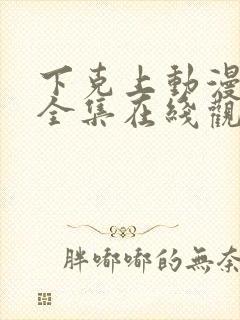 下克上動漫
全集在綫觀
胖嘟嘟的無奈